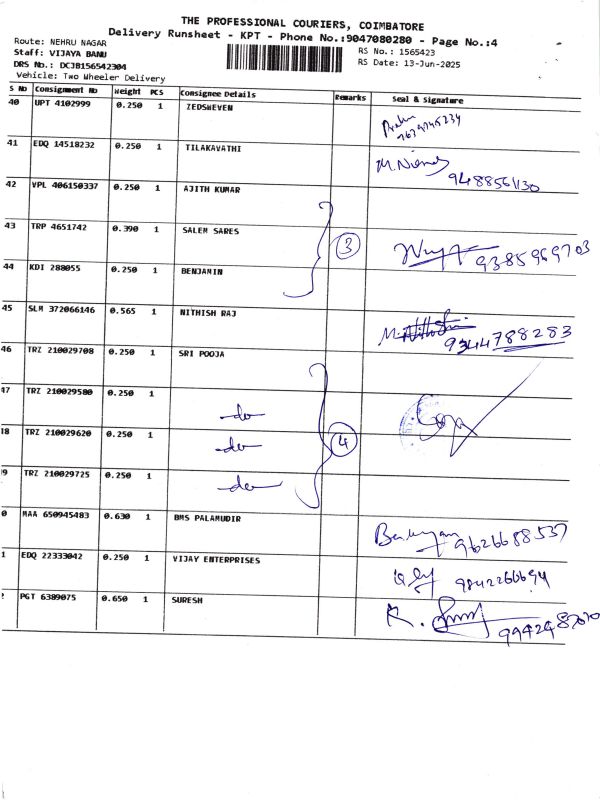 THE PROFESSIONAL COURIERS, COIMBATORE
Delivery Runsheet - KPT - Phone No.:9047080280 - Page No.:4
Route: NEHRU NAGAR
Staff: VIJAYA BANU
DRS No.: DCJB156542304
Vehicle: Two Wheeler Delivery
RS No.: 1565423
RS Date: 13-Jun-2025
S No Consignment No Weight PCS Consignee Details Remarks Seal & Signature
40 UPT 4102999 0.250 1 ZEDSWEVEN
41 EDQ 14518232 0.250 1 TILAKAVATHI
9488561130
42 VPL 406150337 0.250 1 AJITH KUMAR
43 TRP 4651742 0.390 1 SALEM SARES 3 9385969703
44 KDI 288055 0.250 1 BENJAMIN
45 SLM 372066146 0.565 1 NITHISH RAJ
9344788283
46 TRZ 210029708 0.250 1 SRI POOJA
47 TRZ 210029580 0.250 1 -do-
18 TRZ 210029620 0.250 1 -do- 4
9 TRZ 210029725 0.250 1 -do-
0 MAA 650945483 0.630 1 BMS PALAMUDIR
9626688537
1 EDQ 22333042 0.250 1 VIJAY ENTERPRISES 9842266694
2 PGT 6389075 0.650 1 SURESH